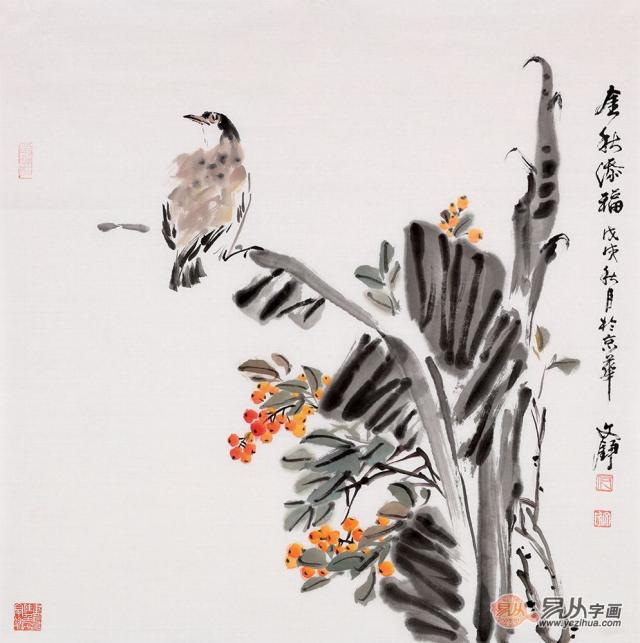 金秋添福
戊戌秋月於京華
文錚
易从
易从字画
www.yczihua.com